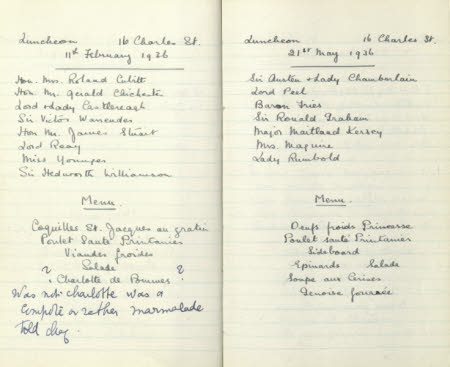 Luncheon 16 Charles St.
11th February 1936
Hon. Mrs. Roland Cubitt
Hon. Mr. Gerald Chichester
Lord & Lady Castlereagh
Sir Victor Warrender
Hon Mr. James Stuart
Lord Reay
Miss Younger
Sir Hedworth Williamson
Menu.
Coquilles St. Jacques au gratin
Poulet Sauté Printanier
Viandes froides
Salade
? Charlotte de Pommes ?
Was not charlotte was a
compote or rather marmalade
Told chef.
Luncheon 16 Charles St.
21st May 1936
Sir Austen & Lady Chamberlain
Lord Peel
Baron Fries
Sir Ronald Graham
Major Maitland Kersey
Mrs. Maguire
Lady Rumbold
Menu.
Oeufs froids Princesse
Poulet sauté Printanier
Sideboard
Epinards Salade
Soupe aux Cerises
Genoise fourrée